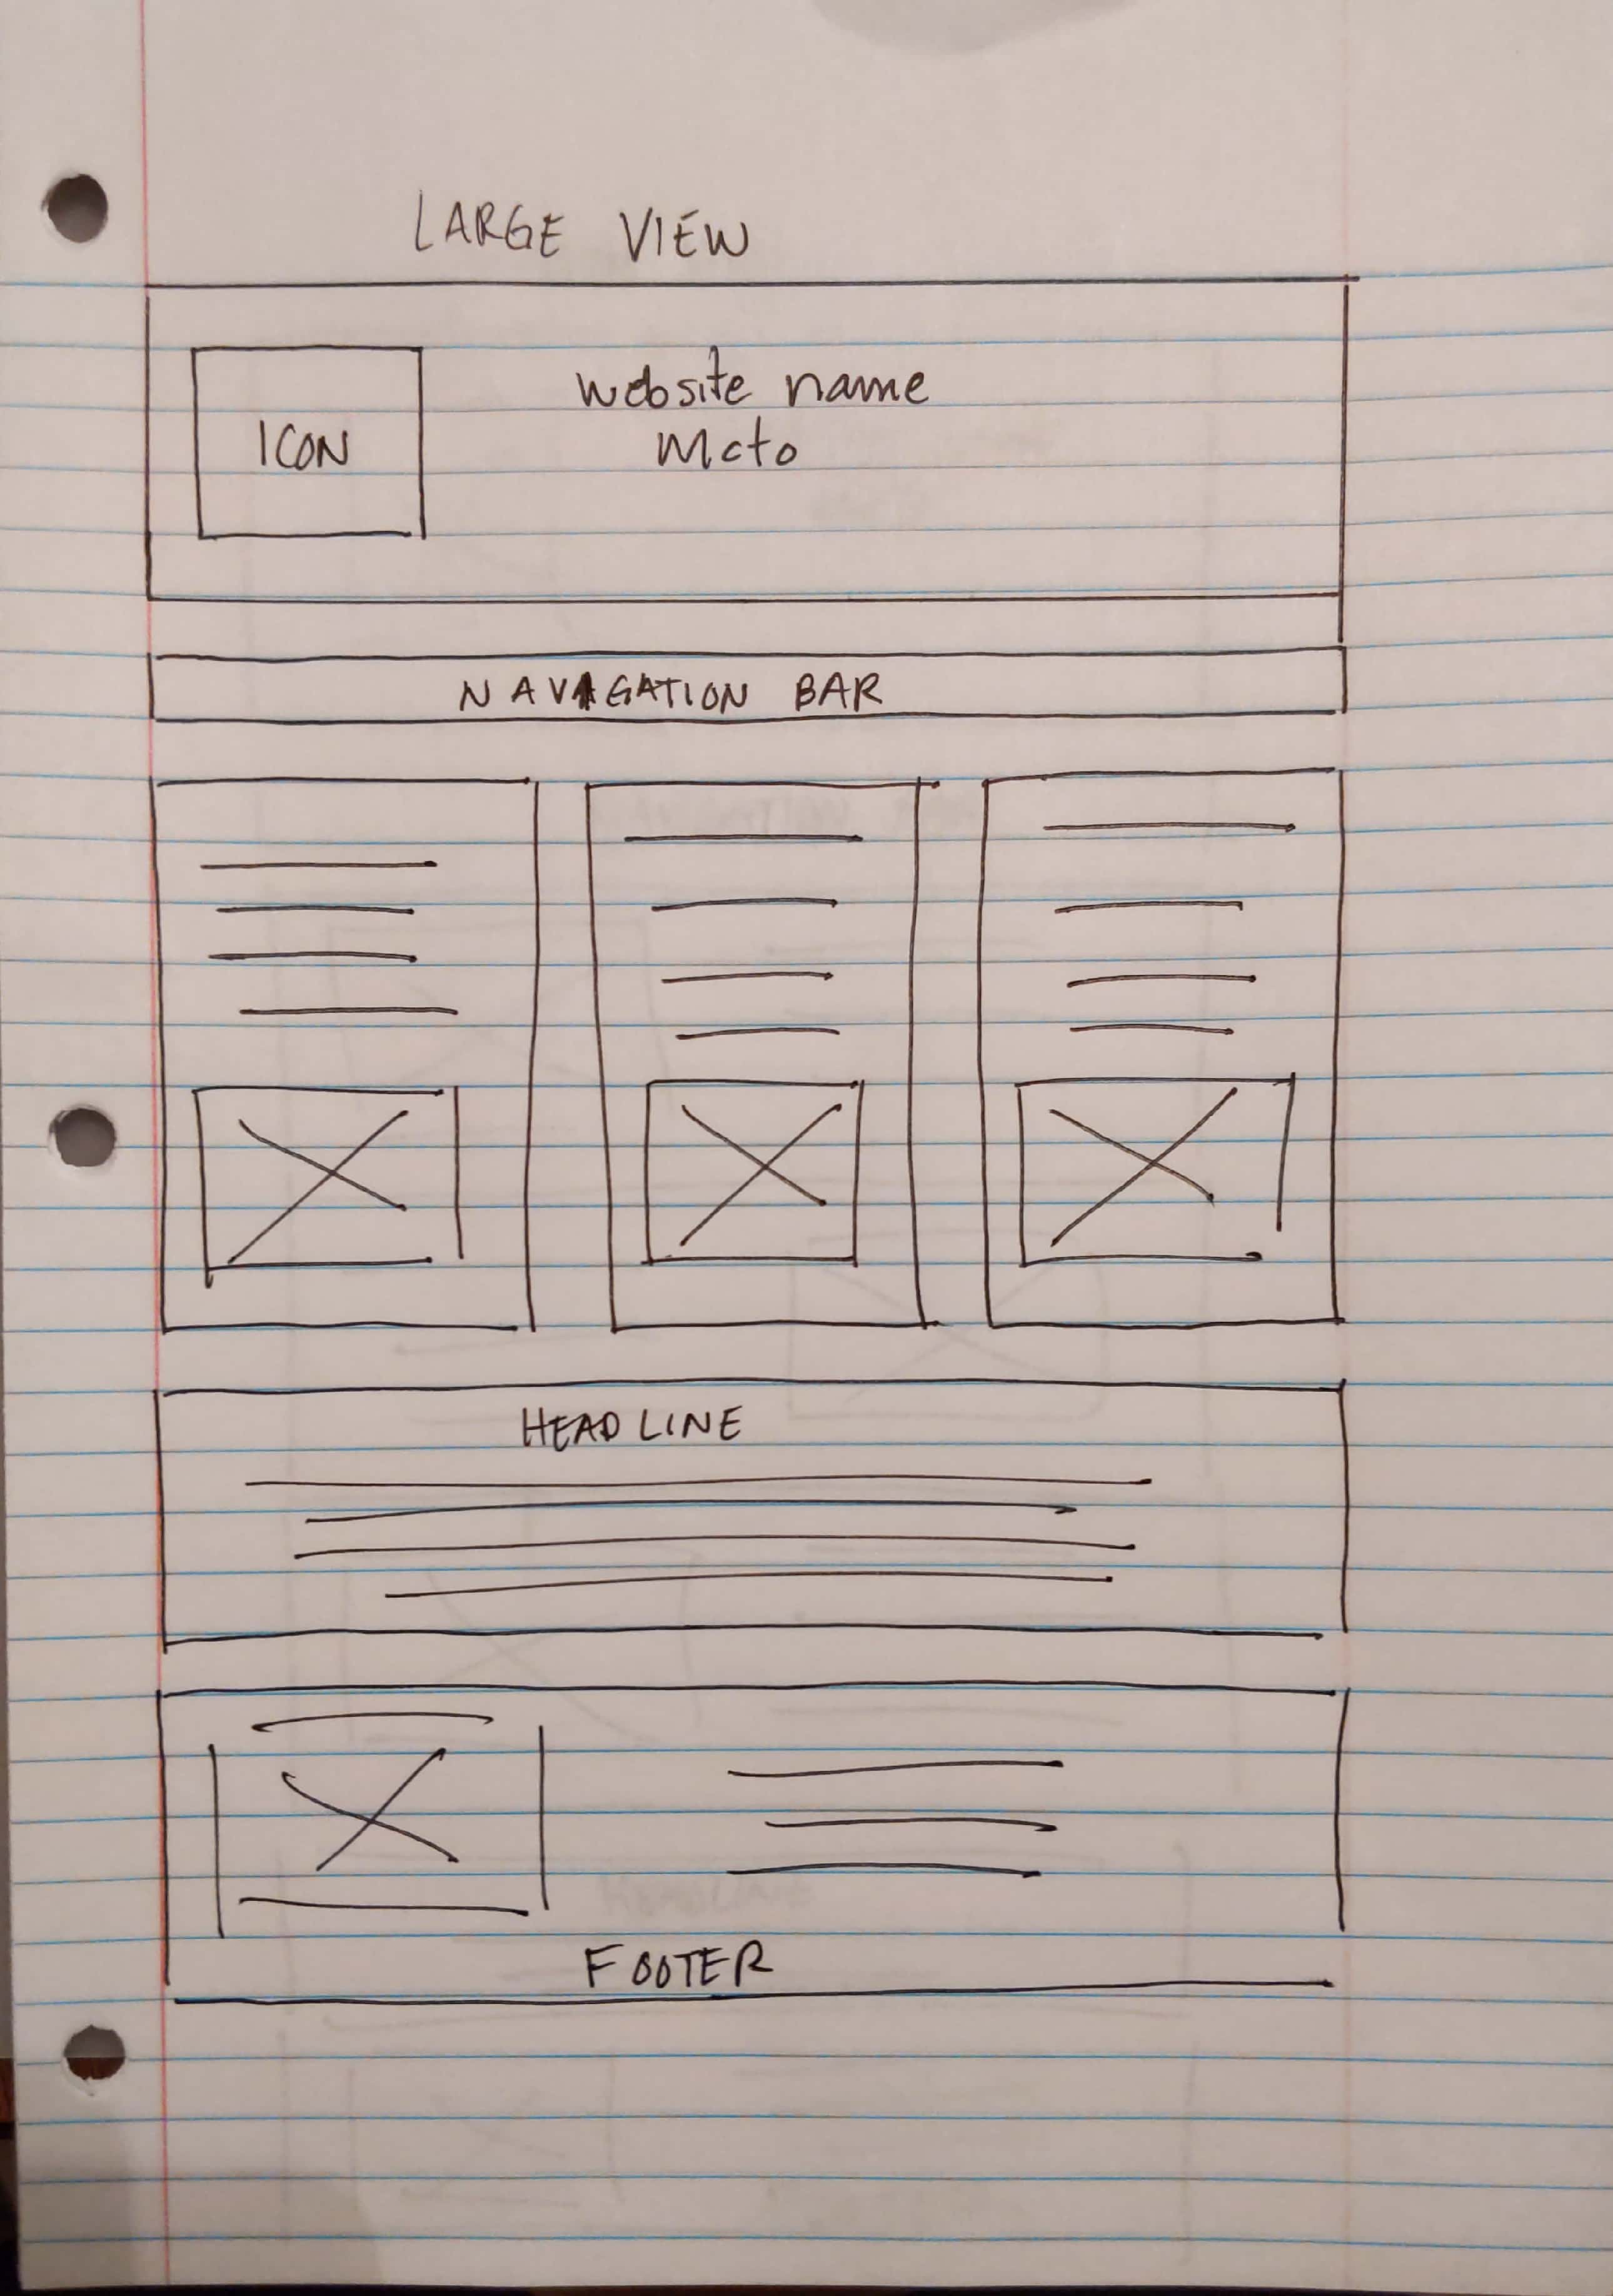 LARGE VIEW
website name
ICON
NAVAGATION BAR
HEADLINE
FOOTER